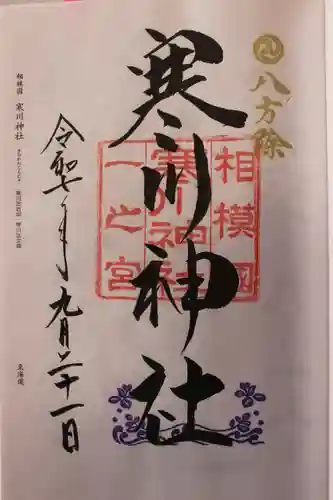 八方除
寒川神社
相模國
寒川神社
一之宮
令和元年九月二十一日
相模國 寒川神社
東海道